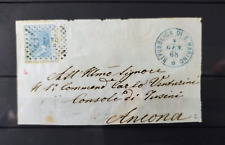 REPUBBLICA DI S. MARINO
GEN
68
All' Illmo Signore
Il Sr. Commend. Carlo Venturini
Console di
Ancona